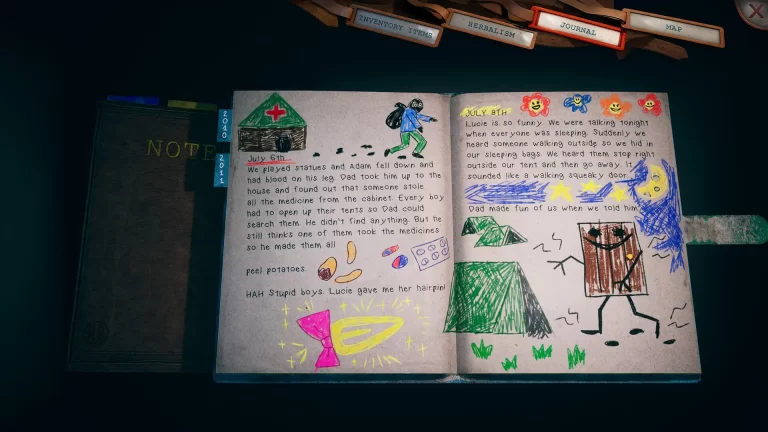 INVENTORY ITEMS
HERBALISM
JOURNAL
MAP
X
NOTE
2040
2011
July 6th
We played statues and Adam fell down and
had blood on his leg. Dad took him up to the
house and found out that someone stole
all the medicine from the cabinet. Every boy
had to open up their tents so Dad could
search them. He didn't find anything. But he
still thinks one of them took the medicines
so he made them all
peel potatoes.
HAH Stupid boys. Lucie gave me her hairpin!
JULY 8TH
Lucie is so funny. We were talking tonight
when everyone was sleeping. Suddenly we
heard someone walking outside so we hid in
our sleeping bags. We heard them stop right
outside our tent and then go away. It
sounded like a walking squeaky door.
Dad made fun of us when we told him.